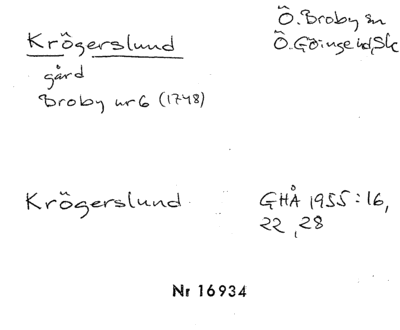 Krögerslund
Ö. Broby sn
Ö. Göinge hd, Sk
gård
Broby nr 6 (1748)
Krögerslund
GHÅ 1955: 16,
22, 28
Nr 16934